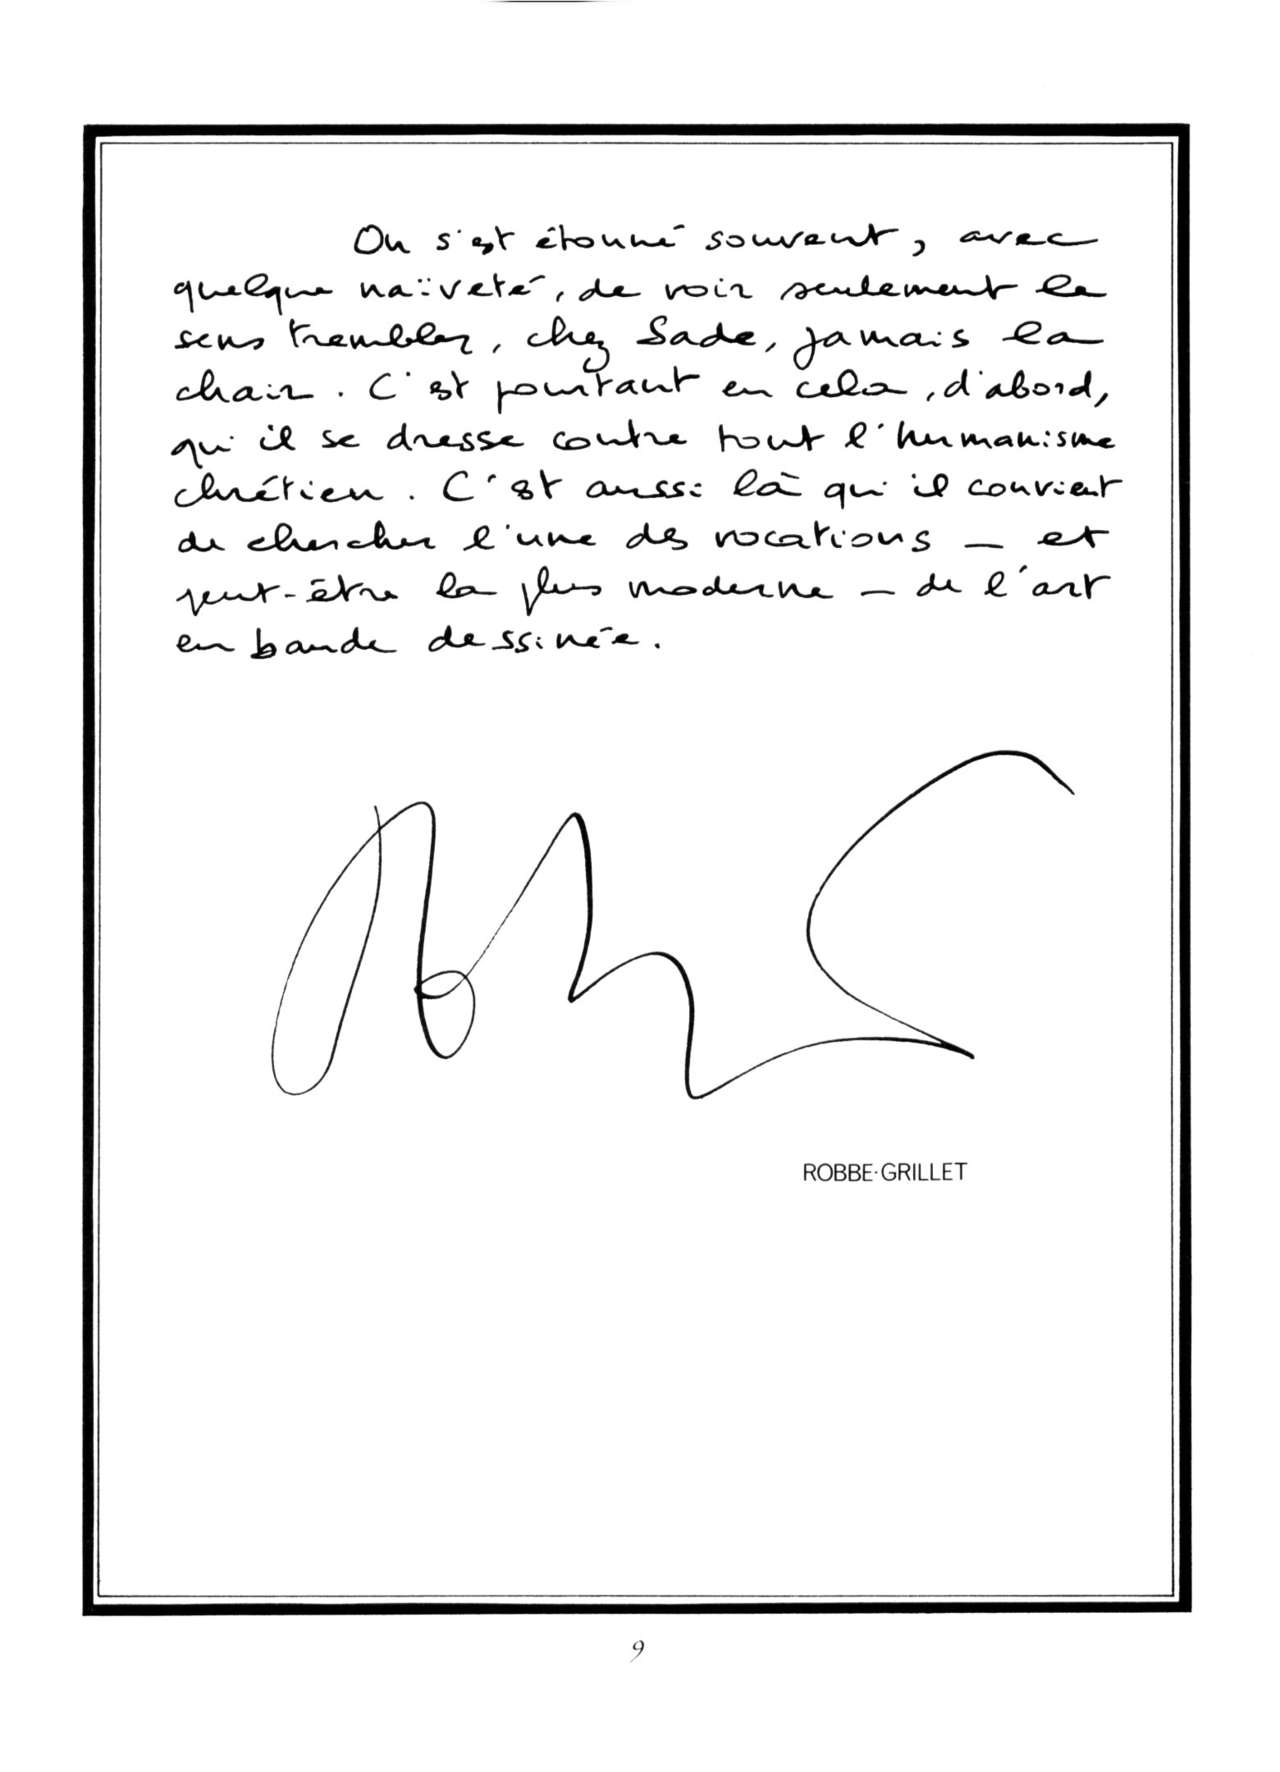 On s'est étonné souvent, avec
quelque naïveté, de voir seulement le
sens trembler, chez Sade, jamais la
chair. C'est pourtant en cela, d'abord,
qu'il se dresse contre tout l'humanisme
chrétien. C'est aussi là qu'il convient
de chercher l'une des vocations — et
peut-être la plus moderne — de l'art
en bande dessinée.
ROBBE-GRILLET
9